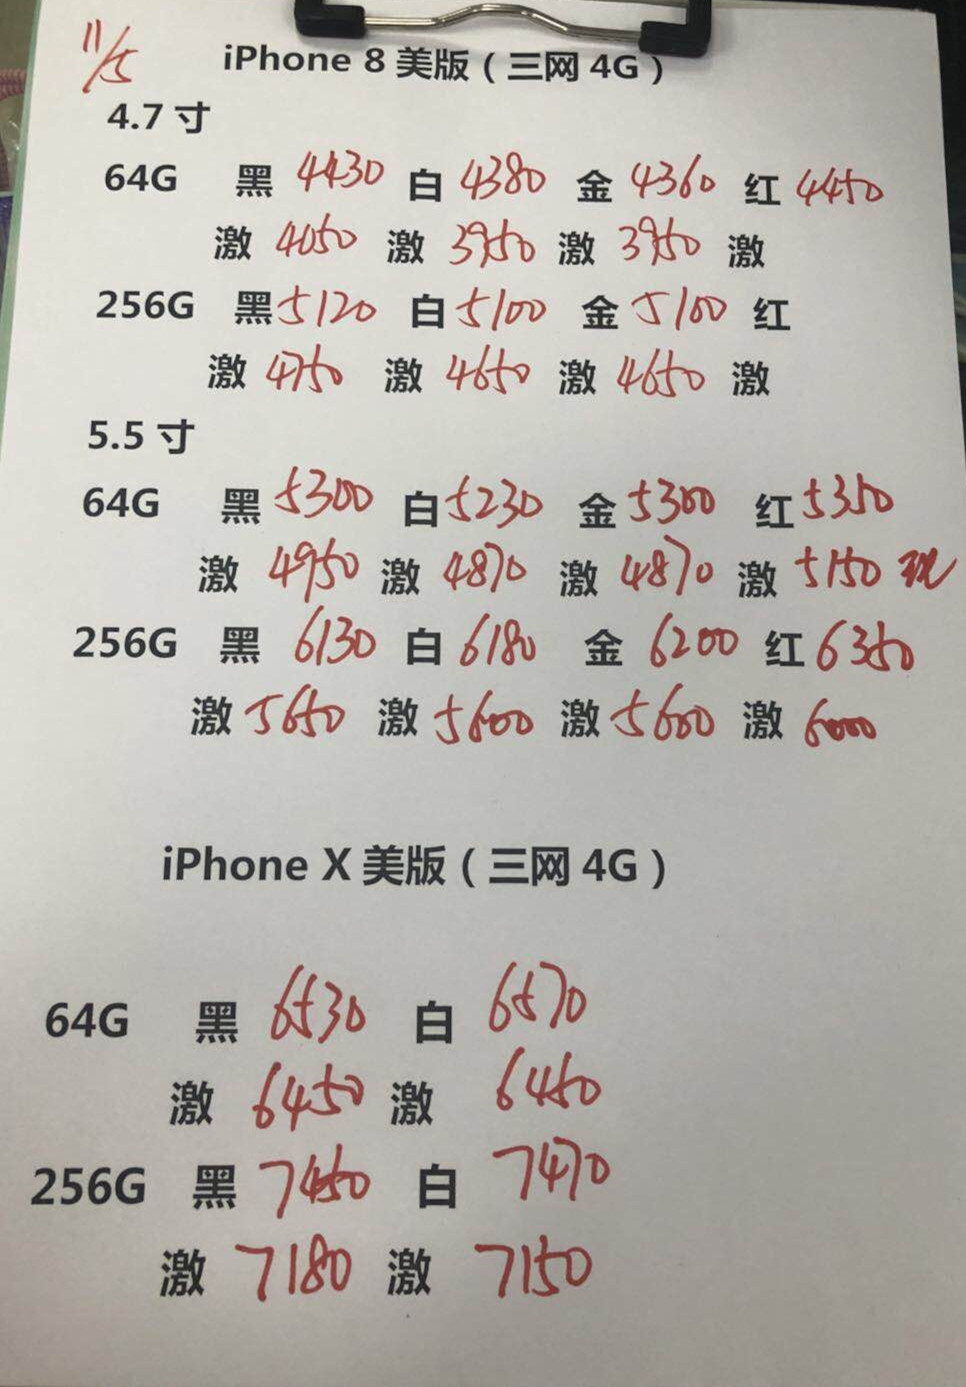 11/5
iPhone 8 美版（三网 4G）
4.7 寸
64G 黑 4430 白 4380 金 4360 红 4450
激 4050 激 3950 激 3950 激
256G 黑 5120 白 5100 金 5100 红
激 4750 激 4650 激 4650 激
5.5 寸
64G 黑 5300 白 5230 金 5300 红 5350
激 4950 激 4870 激 4870 激 5150 现
256G 黑 6130 白 6180 金 6200 红 6350
激 5650 激 5600 激 5600 激 6000
iPhone X 美版（三网 4G）
64G 黑 6530 白 6570
激 6450 激 6450
256G 黑 7450 白 7470
激 7180 激 7150